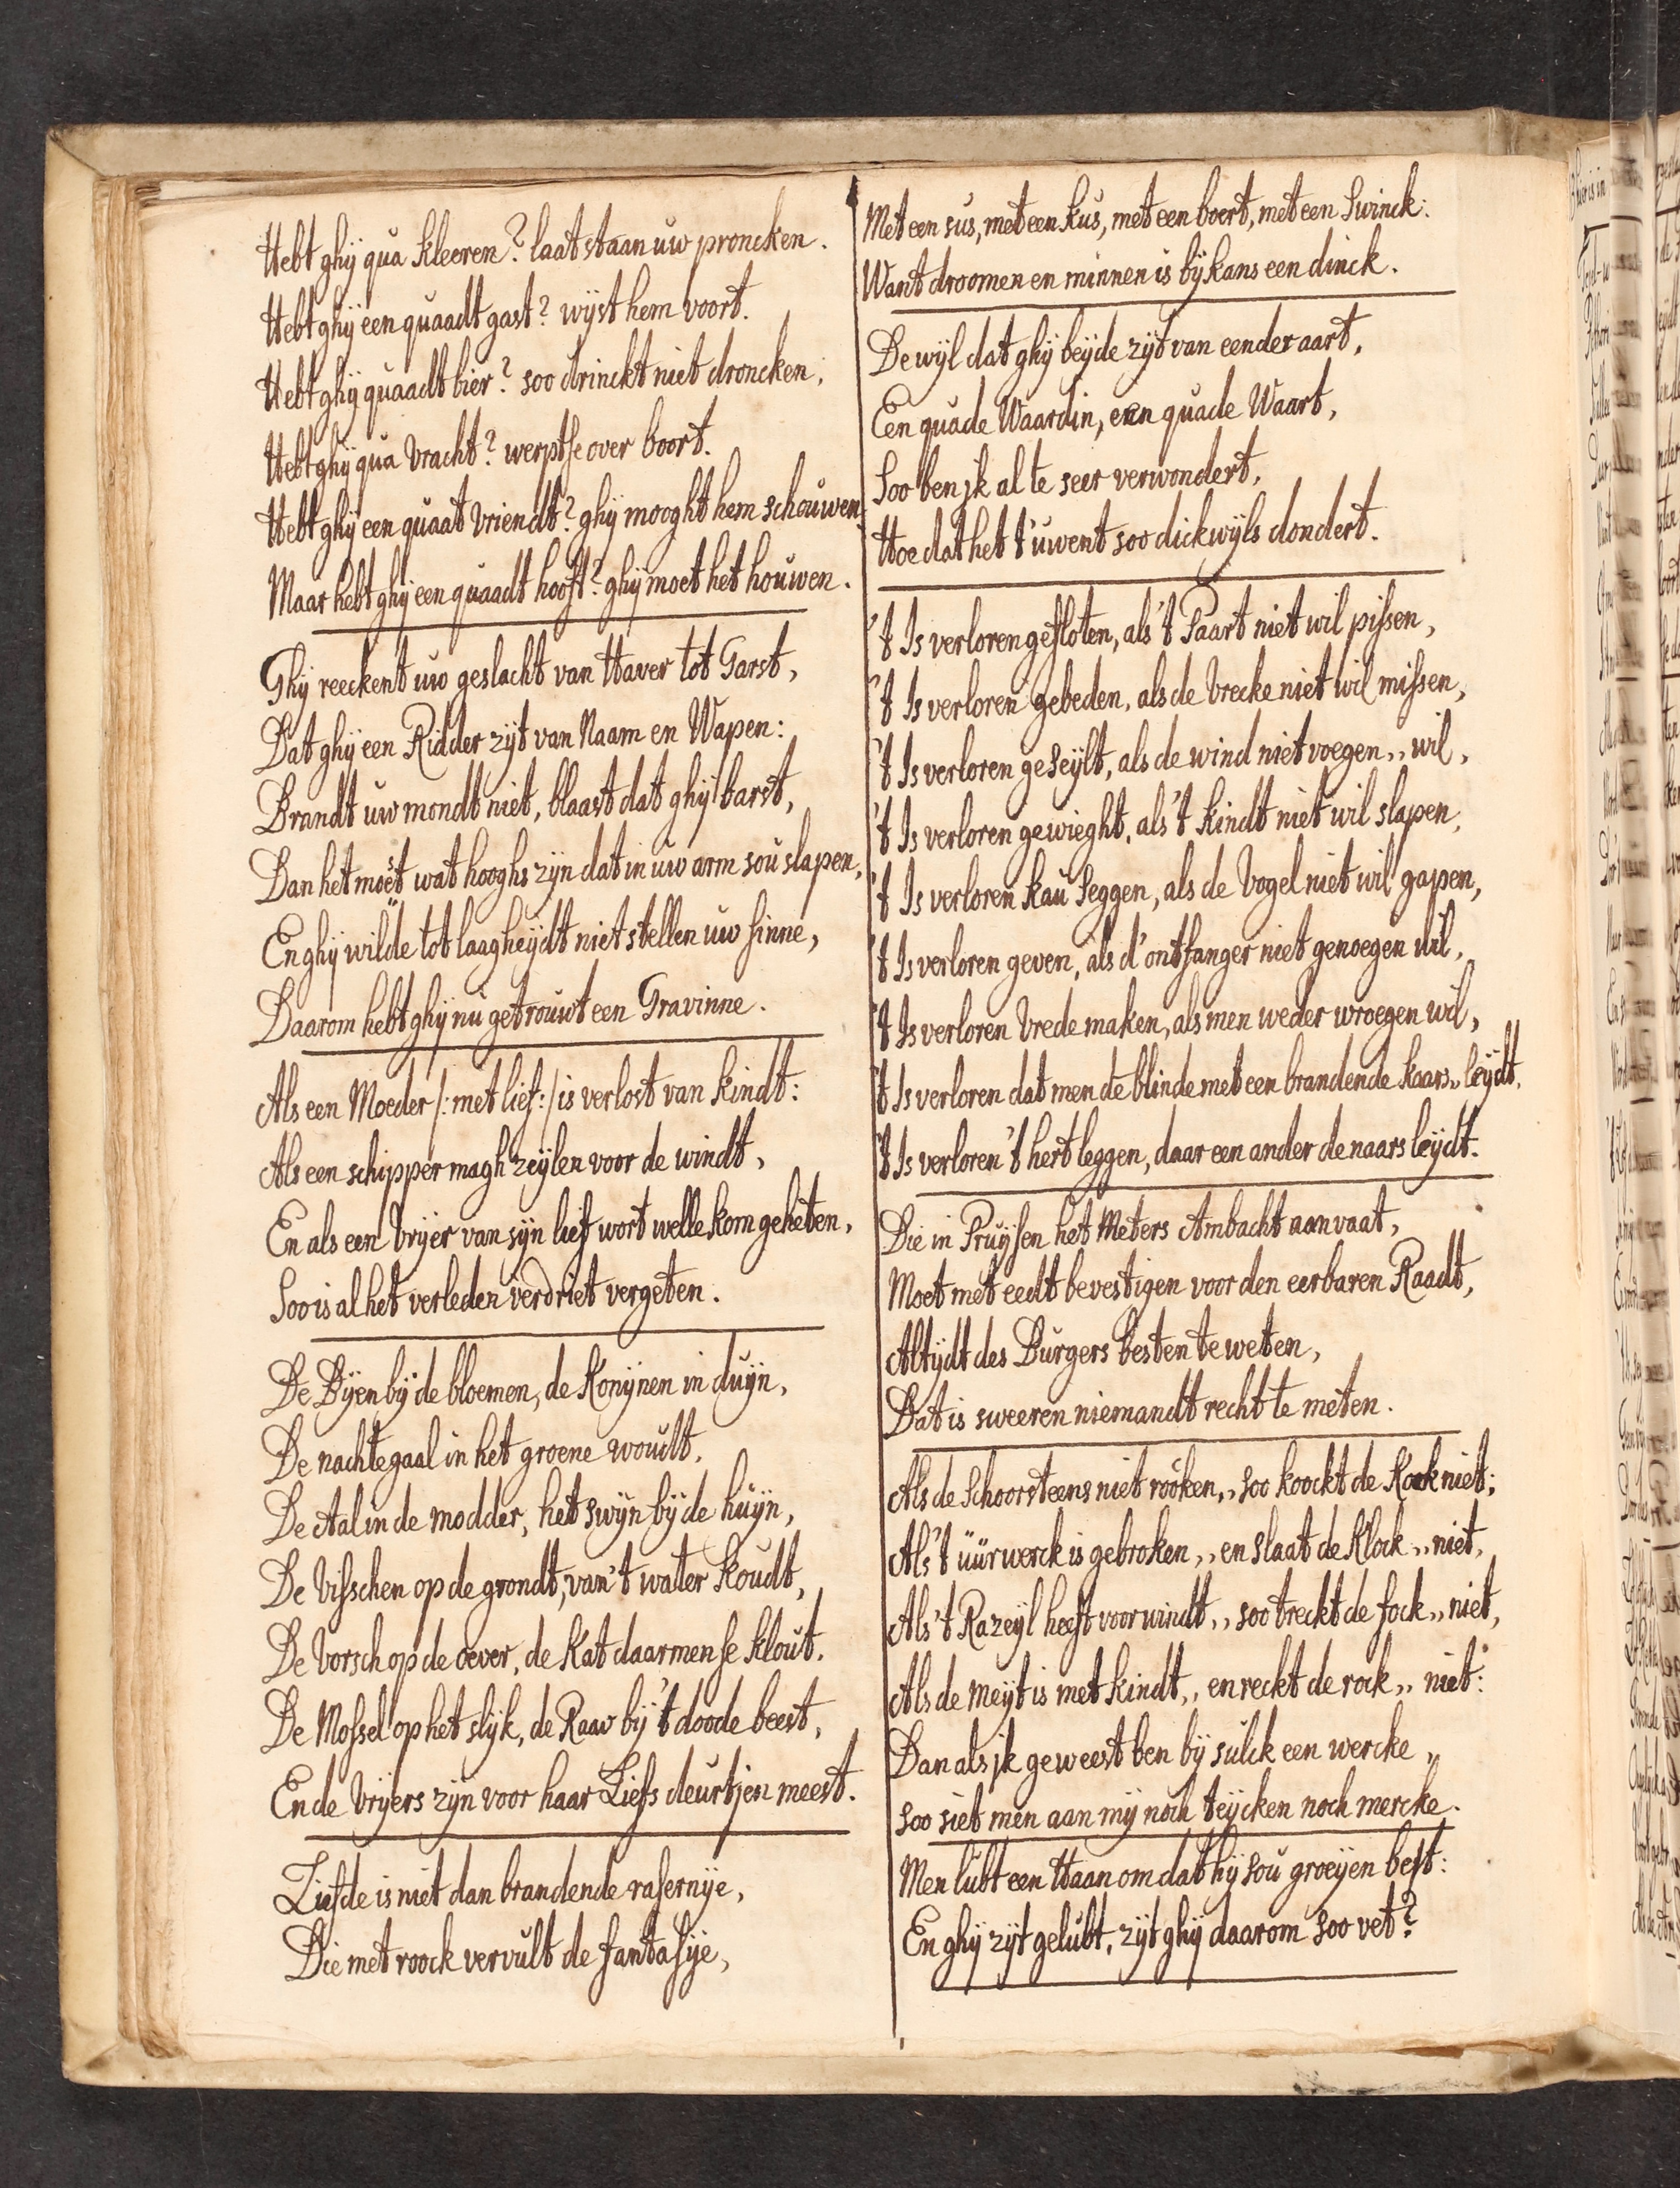 Hebt ghij qua kleeren? laat staan uw proncken.
Hebt ghij een quaadt gast? wijst hem voort.
Hebt ghij quaadt bier? soo drinckt niet droncken,
Hebt ghij qua vracht? werptse over boort.
Hebt ghij een quaat vriendt? ghij mooght hem schouwen,
Maar hebt ghij een quaadt hooft? ghij moet het houwen.
Ghij reeckent uw geslacht van Haver tot Garst,
Dat ghij een Ridder zijt van Naam en Wapen:
Brandt uw mondt niet, blaast dat ghij barst,
Dan het moet wat hooghs zijn dat in uw arm sou slapen,
En ghij wilde tot laagheijdt niet stellen uw sinne,
Daarom hebt ghij nu getrouwt een Gravinne.
Als een Moeder /: met lief :/ is verlost van kindt:
Als een schipper magh zeijlen voor de windt,
En als een vrijer van sijn lief wort wellekom geheten,
Soo is al het verleden verdriet vergeten.
De Bijen bij de bloemen, de Konijnen in duijn,
De nachtegaal in het groene woudt,
De Aal in de modder, het swijn bij de huijn,
De visschen op de grondt, van 't water koudt,
De vorsch op de oever, de Kat daarmen se klout.
De Mossel op het slijk, de Raav bij 't doode beest,
En de vrijers zijn voor haar Liefs deurtjen meest.
Liefde is niet dan brandende rasernije,
Die met roock vervult de fantasije,
Met een sus, met een kus, met een boert, met een swinck:
Want droomen en minnen is bijkans een dinck.
De wijl dat ghij beijde zijt van eender aart,
Een quade Waardin, een quade Waart,
Soo ben jk al te seer verwondert,
Hoe dat het t'uwent soo dickwijls dondert.
't Is verloren gefloten, als 't Paart niet wil pissen,
't Is verloren gebeden, als de vrecke niet wil missen,
't Is verloren geseijlt, als de wind niet voegen,, wil,
't Is verloren gewieght, als 't kindt niet wil slapen,
't Is verloren kau seggen, als de vogel niet wil gapen,
't Is verloren geven, als d'ontfanger niet genoegen wil,
't Is verloren vrede maken, als men weder wroegen wil,
't Is verloren dat men de blinde met een brandende kaars,, leijdt,
't Is verloren 't hert leggen, daar een ander de naars leijdt.
Die in Pruijsen het Meters Ambacht aanvaat,
Moet met eedt bevestigen voor den eerbaren Raadt,
Altijdt des Burgers besten te weten,
Dat is sweeren niemandt recht te meten.
Als de Schoorsteens niet rooken,, soo koockt de Kock niet;
Als 't uurwerck is gebroken,, en slaat de Klock,, niet,
Als 't Razeijl heeft voorwindt,, soo treckt de fock,, niet,
Als de meijt is met kindt,, en reckt de rock,, niet:
Dan als jk geweest ben bij sulck een wercke,,
soo siet men aan mij noch teijcken noch mercke.
Men lubt een Haan om dat hij sou groeijen best:
En ghij zijt gelubt, zijt ghij daarom soo vet?